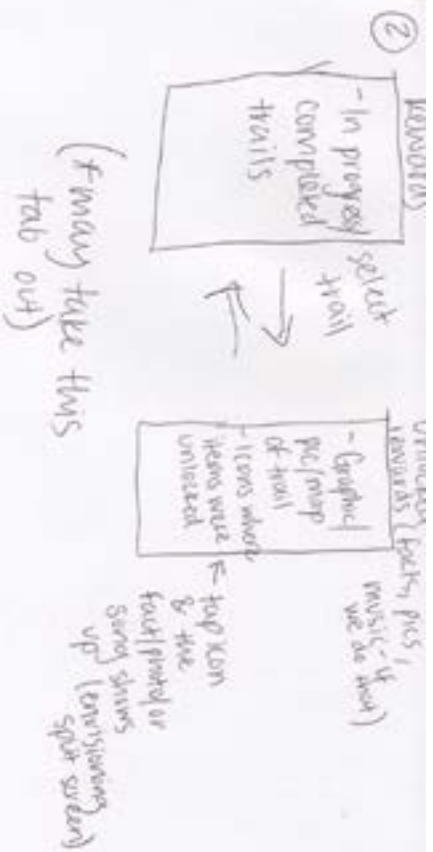 ②
Rewards
- In progress/
completed
trails
select
trail
(* may take this
tab out)
Unlocked
rewards (facts, pics,
music - if
we do that)
- Graphic/
pic/map
of trail
- Icons where
items were
unlocked
tap icon
& the
fact/photo/or
song shows
up (envisioning
split screen)